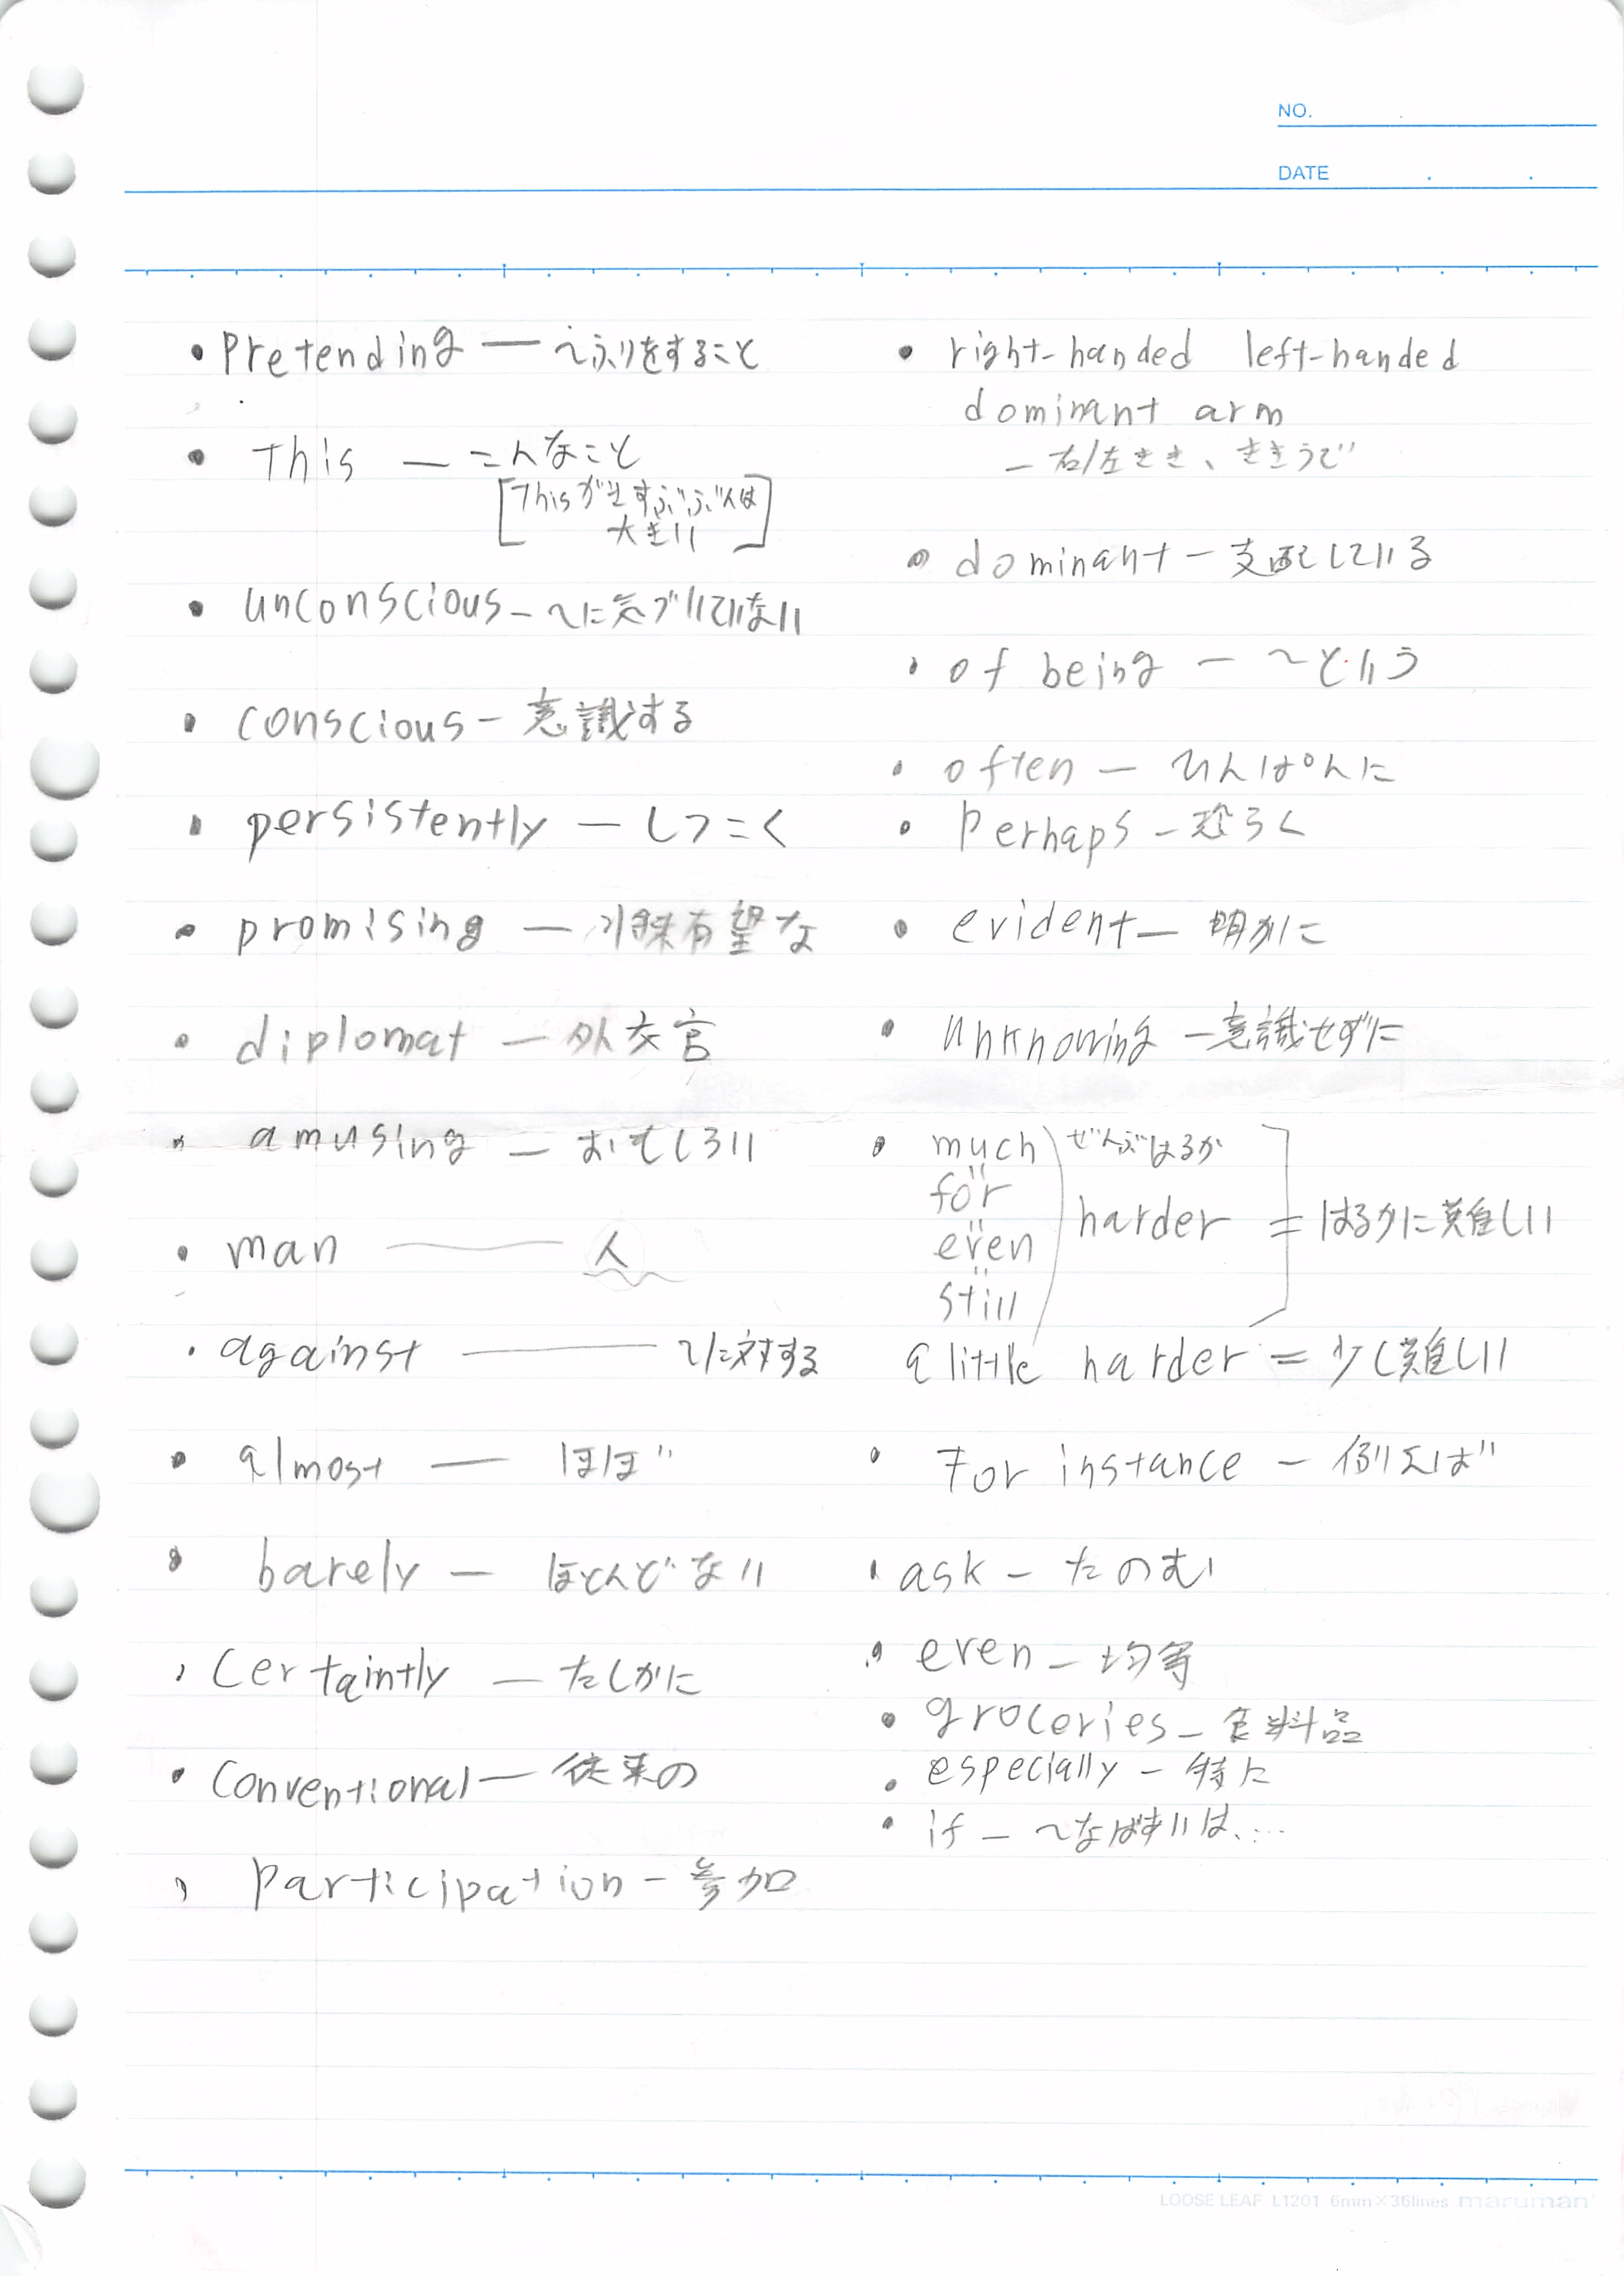 NO.
DATE
• Pretending — 〜ふりをすること
• This — こんなこと
[Thisがさすぶぶんは
大きい]
• unconscious - 〜に気づいていない
• conscious - 意識する
• persistently - しつこく
• promising - 前途有望な
• diplomat - 外交官
• amusing - おもしろい
• man — 人
• against — 〜に対する
• almost — ほぼ
• barely - ほとんどない
• Certaintly - たしかに
• Conventional - 従来の
• participation - 参加
• right-handed left-handed
dominant arm
- 右/左きき、ききうで
• dominant - 支配している
• of being - 〜という
• often - ひんぱんに
• Perhaps - 恐らく
• evident - 明かに
• unknowing - 意識せずに
• much ぜんぶはるか
for
even harder = はるかに難しい
still
a little harder = 少し難しい
• For instance - 例えば
• ask - たのむ
• even - 均等
• groceries - 食料品
• especially - 特に
• if - 〜なば
LOOSE LEAF L1201 6mm×36lines maruman